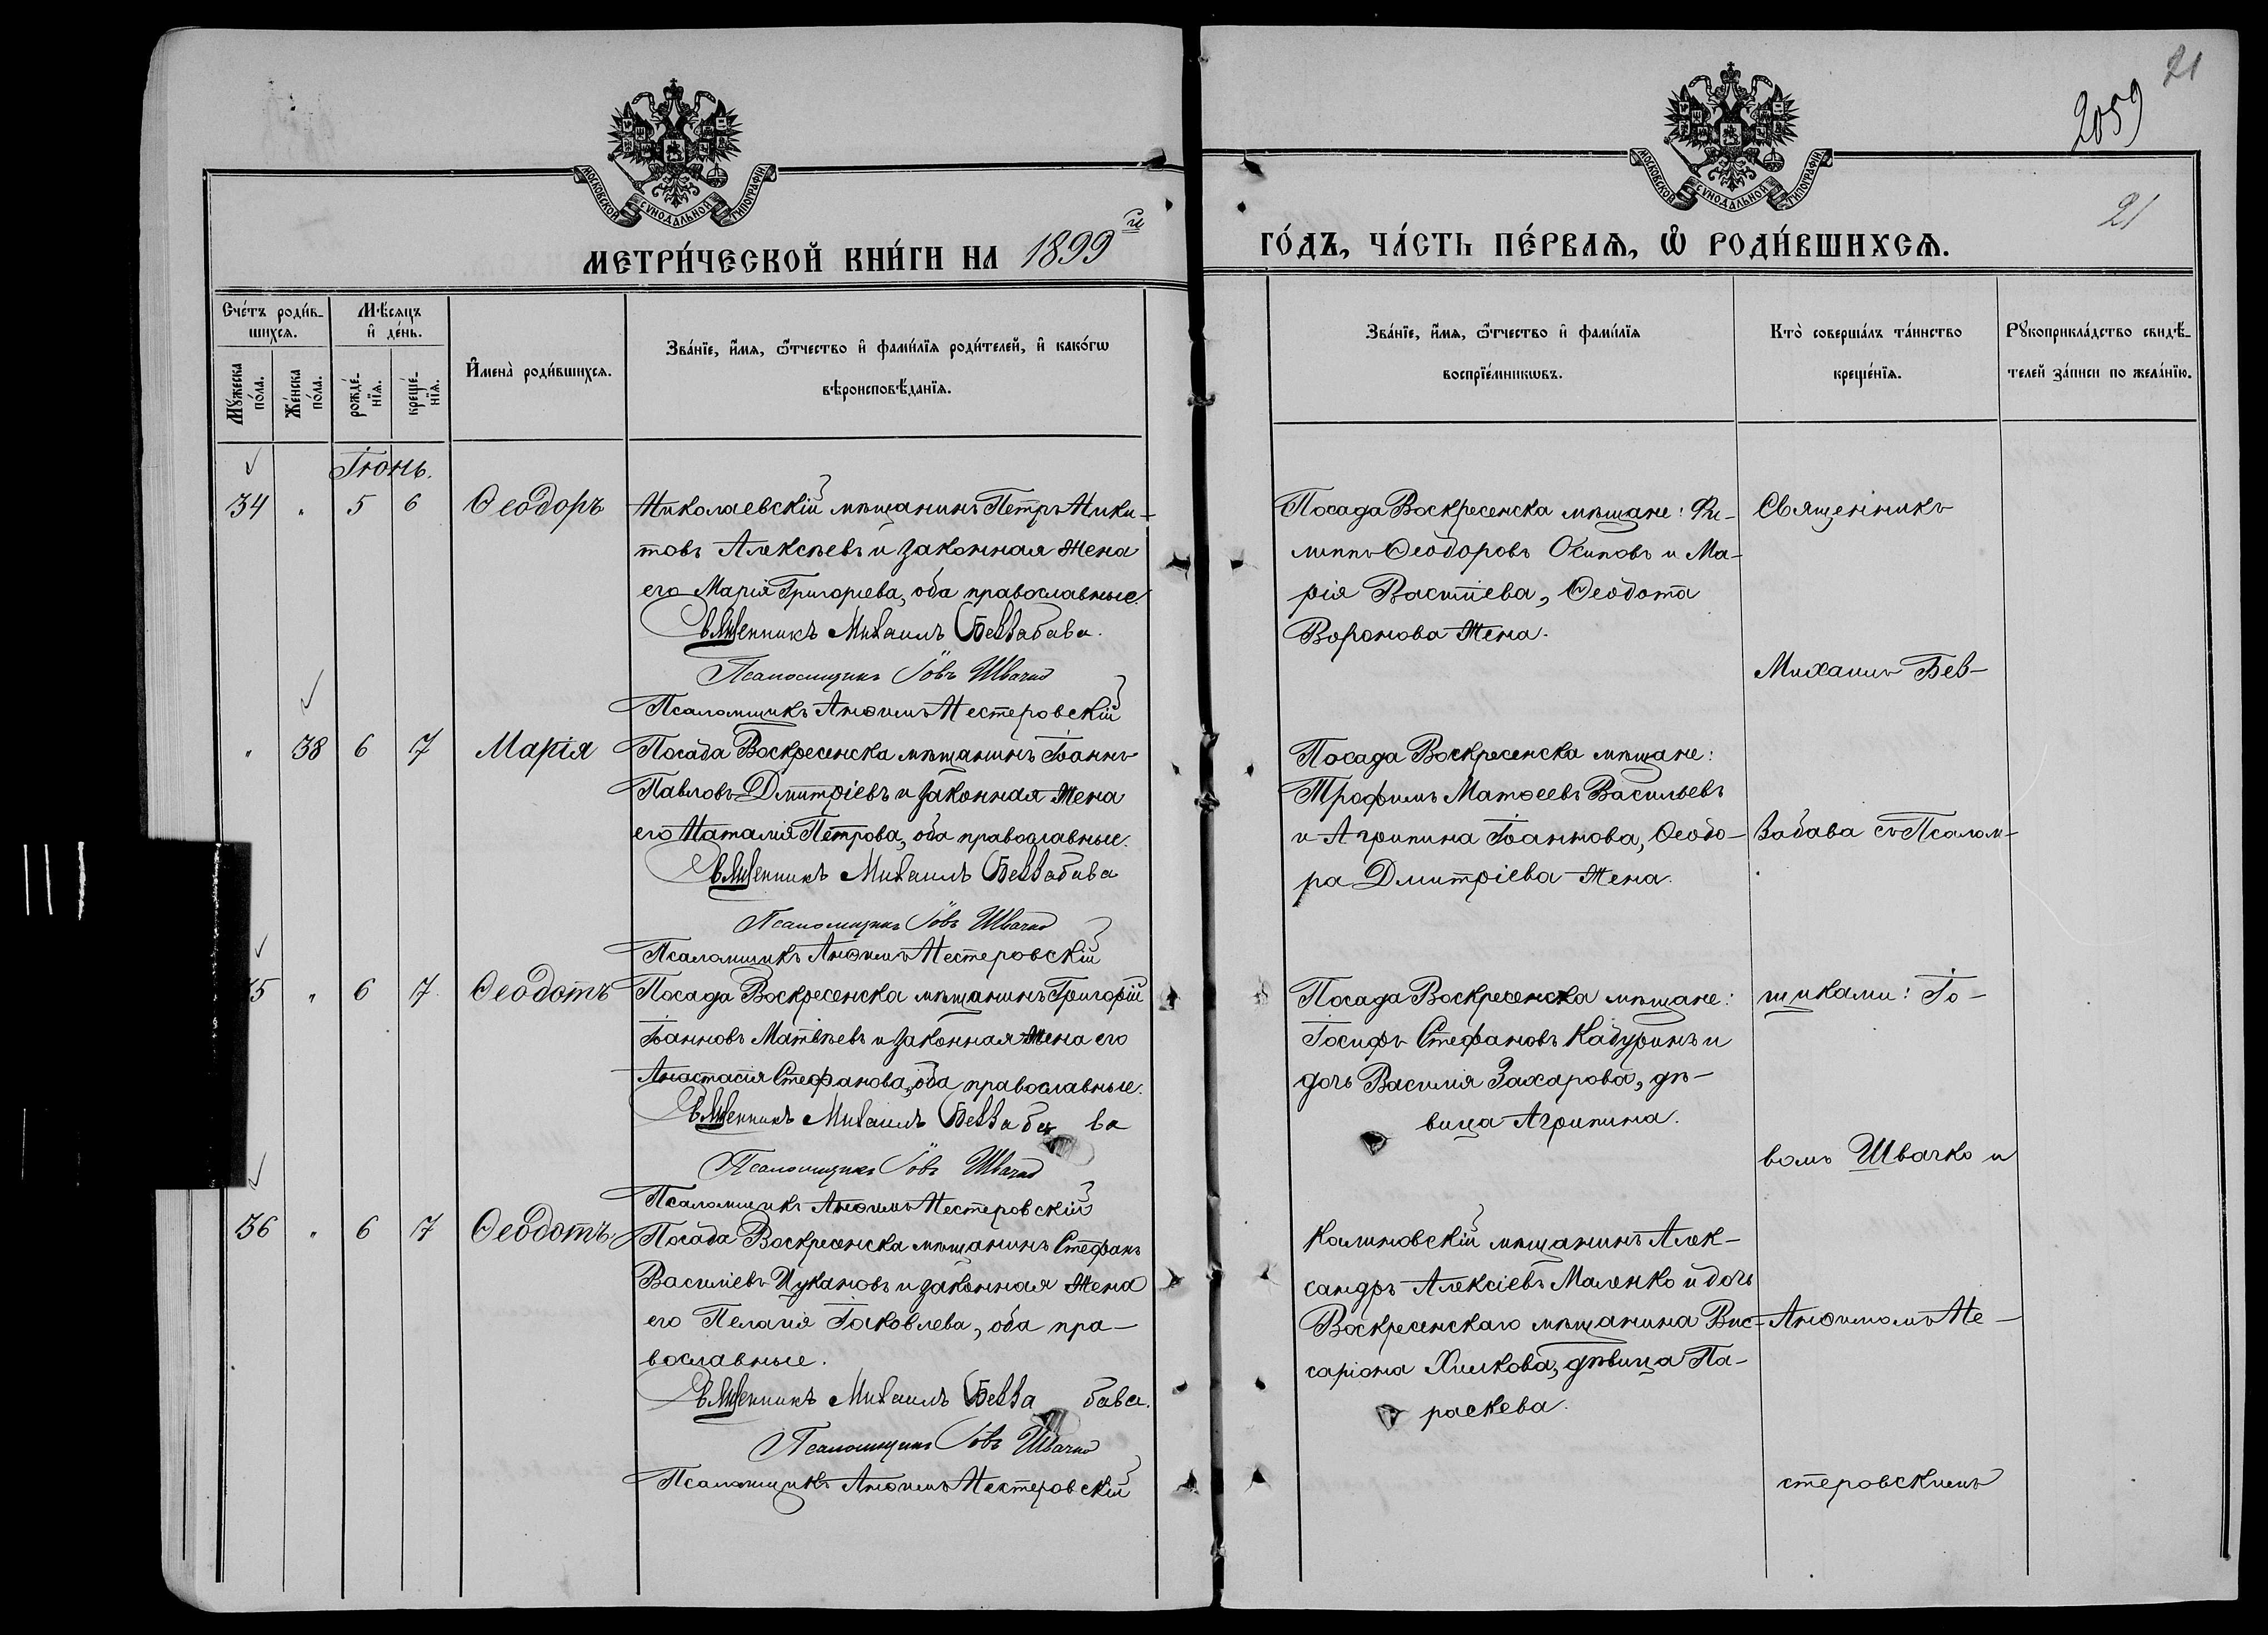 21
2059
21
МОСКОВСКОЙ СѴНОДАЛЬНОЙ ТИПОГРАФІИ
МОСКОВСКОЙ СѴНОДАЛЬНОЙ ТИПОГРАФІИ
МЕТРИ́ЧЕСКОЙ КНИ́ГИ НА 1899й
ГО́ДЪ, ЧА́СТЬ ПЕ́РВАѦ, Ѡ҆ РОДИ́ВШИХСѦ.
Сче́тъ роди́в-
шихсѧ.
Мꙋ́жеска
по́ла.
Же́нска
по́ла.
Мѣ́сѧцъ
и҆ де́нь.
рожде́-
нїѧ.
креще́-
нїѧ.
И҆мена̀ роди́вшихсѧ.
Зва́нїе, и҆́мѧ, ѻ҆́тчество и҆ фами́лїѧ роди́телей, и҆ како́гѡ
вѣроисповѣ́данїѧ.
Зва́нїе, и҆́мѧ, ѻ҆́тчество и҆ фами́лїѧ
воспрїе́мникѡвъ.
Кто̀ соверша́лъ та́инство
креще́нїѧ.
Рꙋкоприкла́дство свидѣ́-
телей за́писи по жела́нїю.
Іюнь.
34 " 5 6 Ѳеодоръ
Николаевскій мѣщанинъ Петръ Ники-
товъ Алексѣевъ и законная жена
его Марія Григоріева, оба православные.
Священникъ Михаилъ Беззабава.
Псаломщикъ Іовъ Швачко
Псаломщикъ Анѳимъ Нестеровскій
Посада Воскресенска мѣщане: Фи-
липпъ Ѳеодоровъ Осиповъ и Ма-
рія Вастіева, Ѳеодота
Воронова жена.
Священникъ
Михаилъ Без-
" 38 6 7 Марія
Посада Воскресенска мѣщанинъ Іоаннъ
Павловъ Дмитріевъ и законная жена
его Наталія Петрова, оба православные.
Священникъ Михаилъ Беззабава
Псаломщикъ Іовъ Швачко
Псаломщикъ Анѳимъ Нестеровскій
Посада Воскресенска мѣщане:
Трофимъ Матѳеевъ Васильевъ
и Агрипина Іоаннова, Ѳеодо-
ра Дмитріева жена.
забава съ Псалом-
35 " 6 7 Ѳеодотъ
Посада Воскресенска мѣщанинъ Григорій
Іоанновъ Матвѣевъ и законная жена его
Анастасія Стефанова, оба православные.
Священникъ Михаилъ Беззабава
Псаломщикъ Іовъ Швачко
Псаломщикъ Анѳимъ Нестеровскій
Посада Воскресенска мѣщане:
Іосифъ Стефановъ Кабуринъ и
дочь Василія Захарова, дѣ-
вица Агрипина.
щиками: Іо-
вомъ Швачко и
36 " 6 7 Ѳеодотъ
Посада Воскресенска мѣщанинъ Стефанъ
Василіевъ Цукановъ и законная жена
его Пелагія Іаковлева, оба пра-
вославные.
Священникъ Михаилъ Беззабава.
Псаломщикъ Іовъ Швачко
Псаломщикъ Анѳимъ Нестеровскій
Калиновскій мѣщанинъ Алек-
сандръ Алексіевъ Маленко и дочь
Воскресенскаго мѣщанина Вис-
саріона Хилкова, дѣвица Па-
раскева.
Анѳимомъ Не-
стеровскимъ